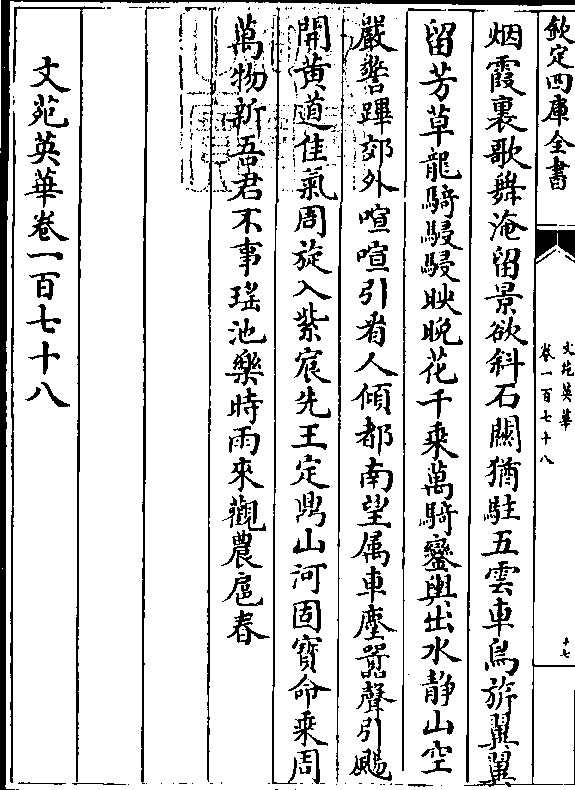 欽定四庫全書
文苑英華
卷一百七十八
十七
烟霞裏歌舞淹留景欲斜石關猶駐五雲車鳥旂翼翼
留芳草龍騎駸駸映晩花千乘萬騎鑾輿出水静山空
嚴警蹕郊外喧喧引看人傾都南望属車塵囂聲引颺
開黄道佳氣周旋入紫宸先王定鼎山河固寳命乘周
萬物新吾君不事瑤池樂時雨來觀農扈春
文苑英華卷一百七十八